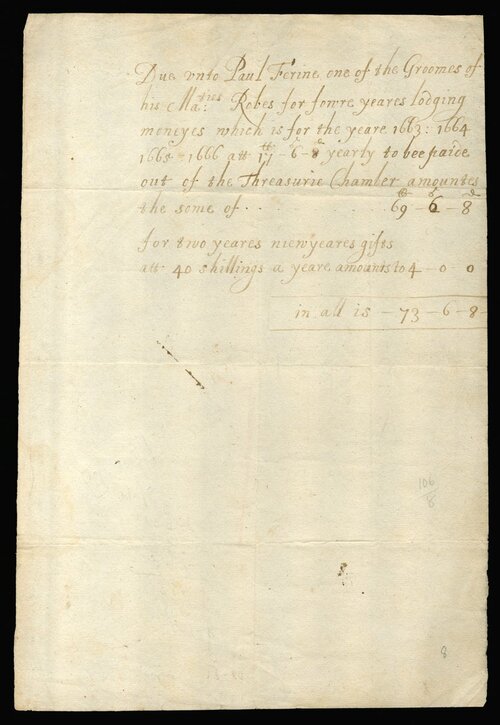 Due vnto Paul Ferine one of the Groomes of
his Ma:ties Robes for fowre yeares lodging
moneyes which is for the yeare 1663: 1664
1665 - 1666 att 17 - 6 - 8 yearly to bee paide
out of the Threasurie Chamber amountes
the some of . . . 69 - 6 - 8
for two yeares niewyeares gifts
att 40 shillings a yeare amounts to 4 - 0 - 0
in all is - 73 - 6 - 8 -
106
8
8